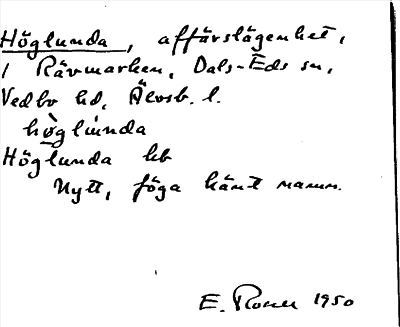 Höglunda, affärslägenhet,
i Rävmarken, Dals-Eds sn,
Vedbo hd, Älvsb. l.
hö̀glúnda
Höglunda hb
Nytt, föga känt namn.
E. 1950